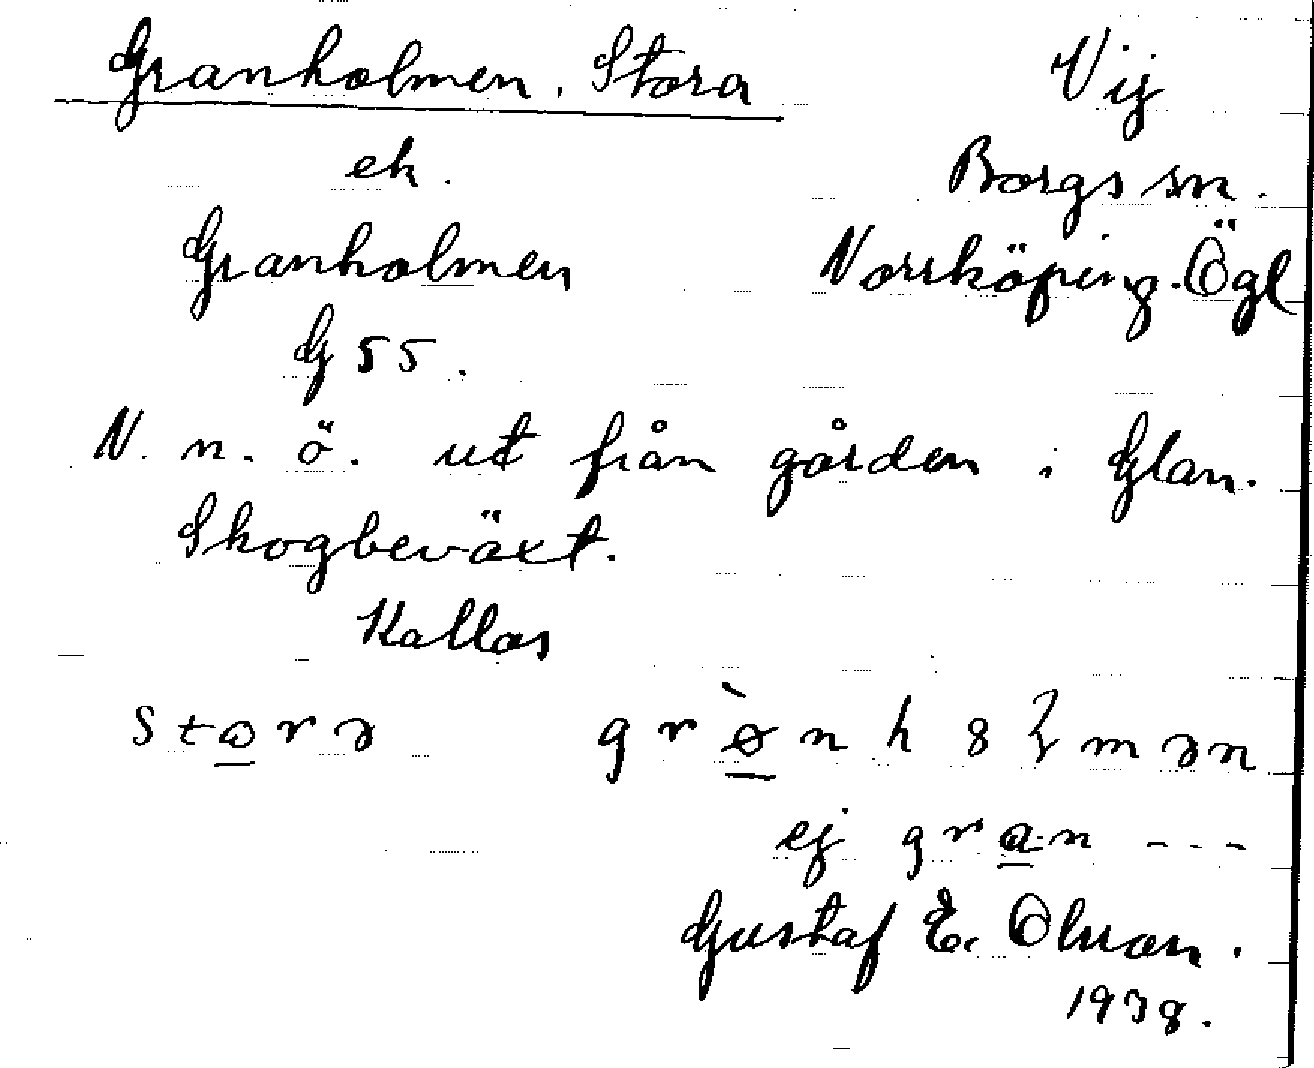 Granholmen, Stora
Vij
ek.
Borgs sn.
Granholmen
Norrköping. Ögl
G 55.
N. n. ö. ut från gården i Glan.
Skogbeväxt.
Kallas
ej gran ---
Gustaf E. Olson.
1938.